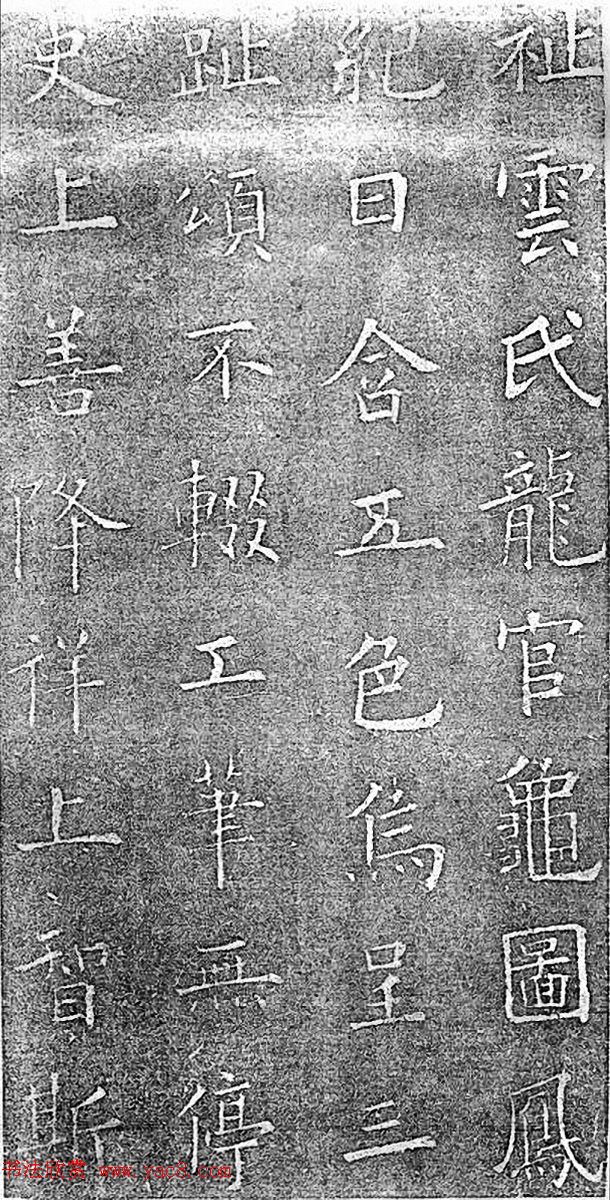 祉雲氏龍官龜圖鳳
紀日含五色烏呈三
趾頌不輟工筆無停
史上善降祥上智斯
书法欣赏 www.yac8.com